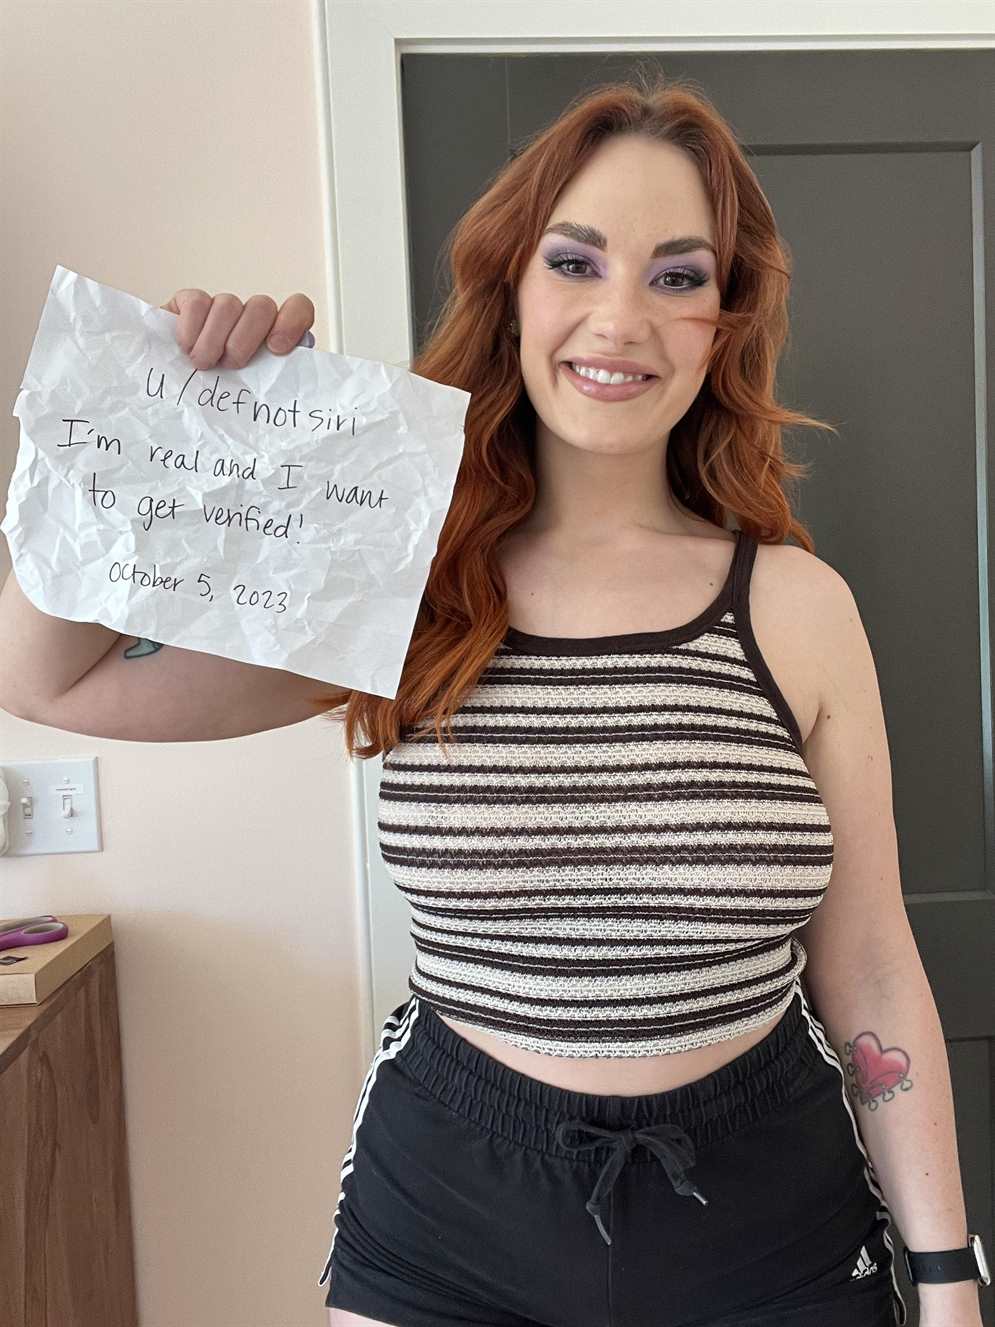 u/defnotsiri
I'm real and I want
to get verified!
October 5, 2023
adidas